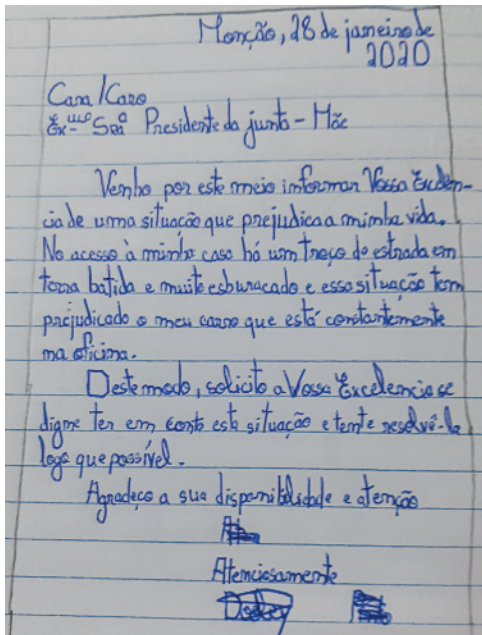 Monção, 28 de janeiro de
2020
Cara/Caro
Ex.ma Sra Presidente da junta - Mãe
Venho por este meio informar Vossa Exelen-
cia de uma situação que prejudica a minha vida.
No acesso à minha casa há um troço de estrada em
terra batida e muito esburacado e essa situação tem
prejudicado o meu carro que está constantemente
na oficina.
Deste modo, solicito a Vossa Excelencia se
digne ter em conta esta situação e tente resolvê-la
logo que possível.
Agradeço a sua disponibilidade e atenção
Atenciosamente